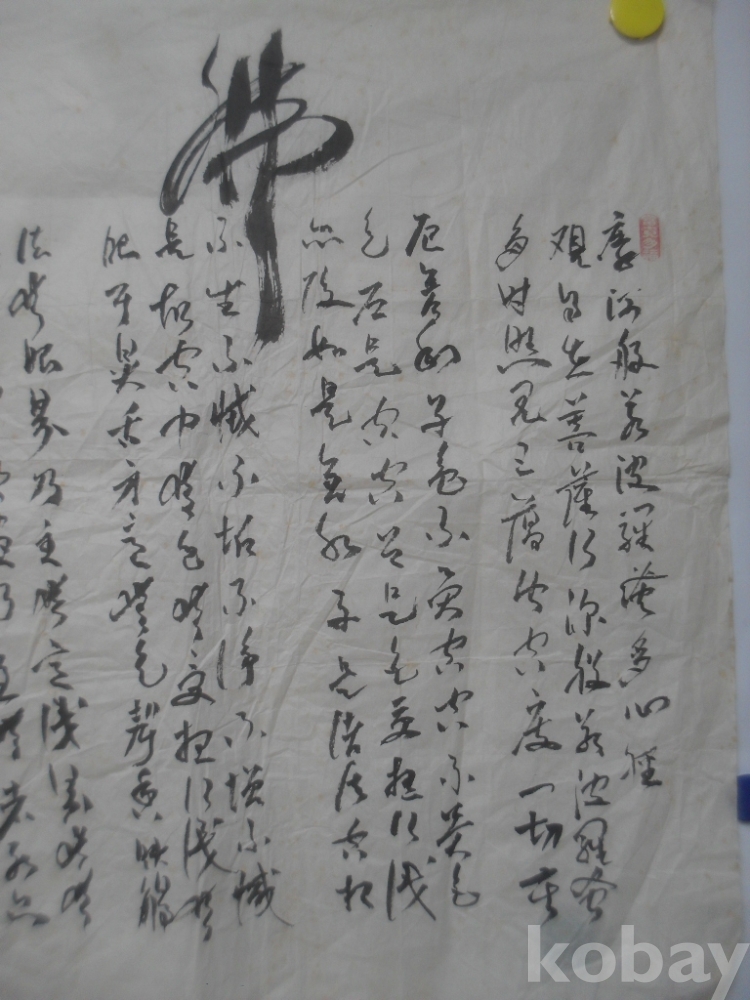 佛
摩訶般若波羅蜜多心經
觀自在菩薩行深般若波羅蜜
多時照見五蘊皆空度一切苦
厄舍利子色不異空空不異色
色即是空空即是色受想行識
亦復如是舍利子是諸法空相
不生不滅不垢不淨不增不減
是故空中無色無受想行識無
眼耳鼻舌身意無色聲香味觸
法無眼界乃至無意識界無無
盡乃至無老死亦
kobay